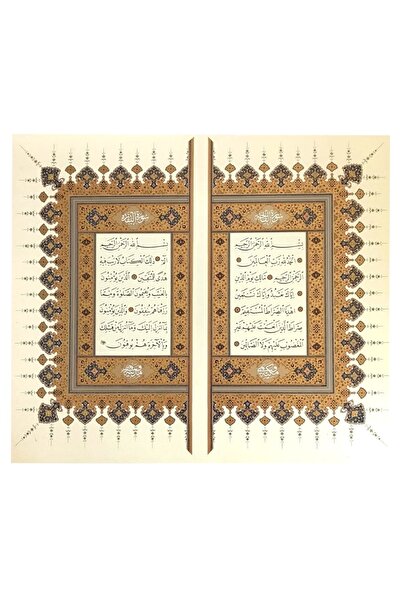 بِسْمِ اللّٰهِ الرَّحْمٰنِ الرَّحِيمِ
اَلْحَمْدُ لِلّٰهِ رَبِّ الْعَالَمِينَ
اَلرَّحْمٰنِ الرَّحِيمِ مَالِكِ يَوْمِ الدِّينِ
اِيَّاكَ نَعْبُدُ وَاِيَّاكَ نَسْتَعِينُ
اِهْدِنَا الصِّرَاطَ الْمُسْتَقِيمَ
صِرَاطَ الَّذِينَ اَنْعَمْتَ عَلَيْهِمْ غَيْرِ
الْمَغْضُوبِ عَلَيْهِمْ وَلَا الضَّالِّينَ
سورة البقرة
بِسْمِ اللّٰهِ الرَّحْمٰنِ الرَّحِيمِ
الٓمٓ ذٰلِكَ الْكِتَابُ لَا رَيْبَ فِيهِ
هُدًى لِلْمُتَّقِينَ اَلَّذِينَ يُؤْمِنُونَ
بِالْغَيْبِ وَيُقِيمُونَ الصَّلٰوةَ وَمِمَّا
رَزَقْنَاهُمْ يُنْفِقُونَ وَالَّذِينَ يُؤْمِنُونَ
بِمَا اُنْزِلَ اِلَيْكَ وَمَا اُنْزِلَ مِنْ قَبْلِكَ
وَبِالْاٰخِرَةِ هُمْ يُوقِنُونَ